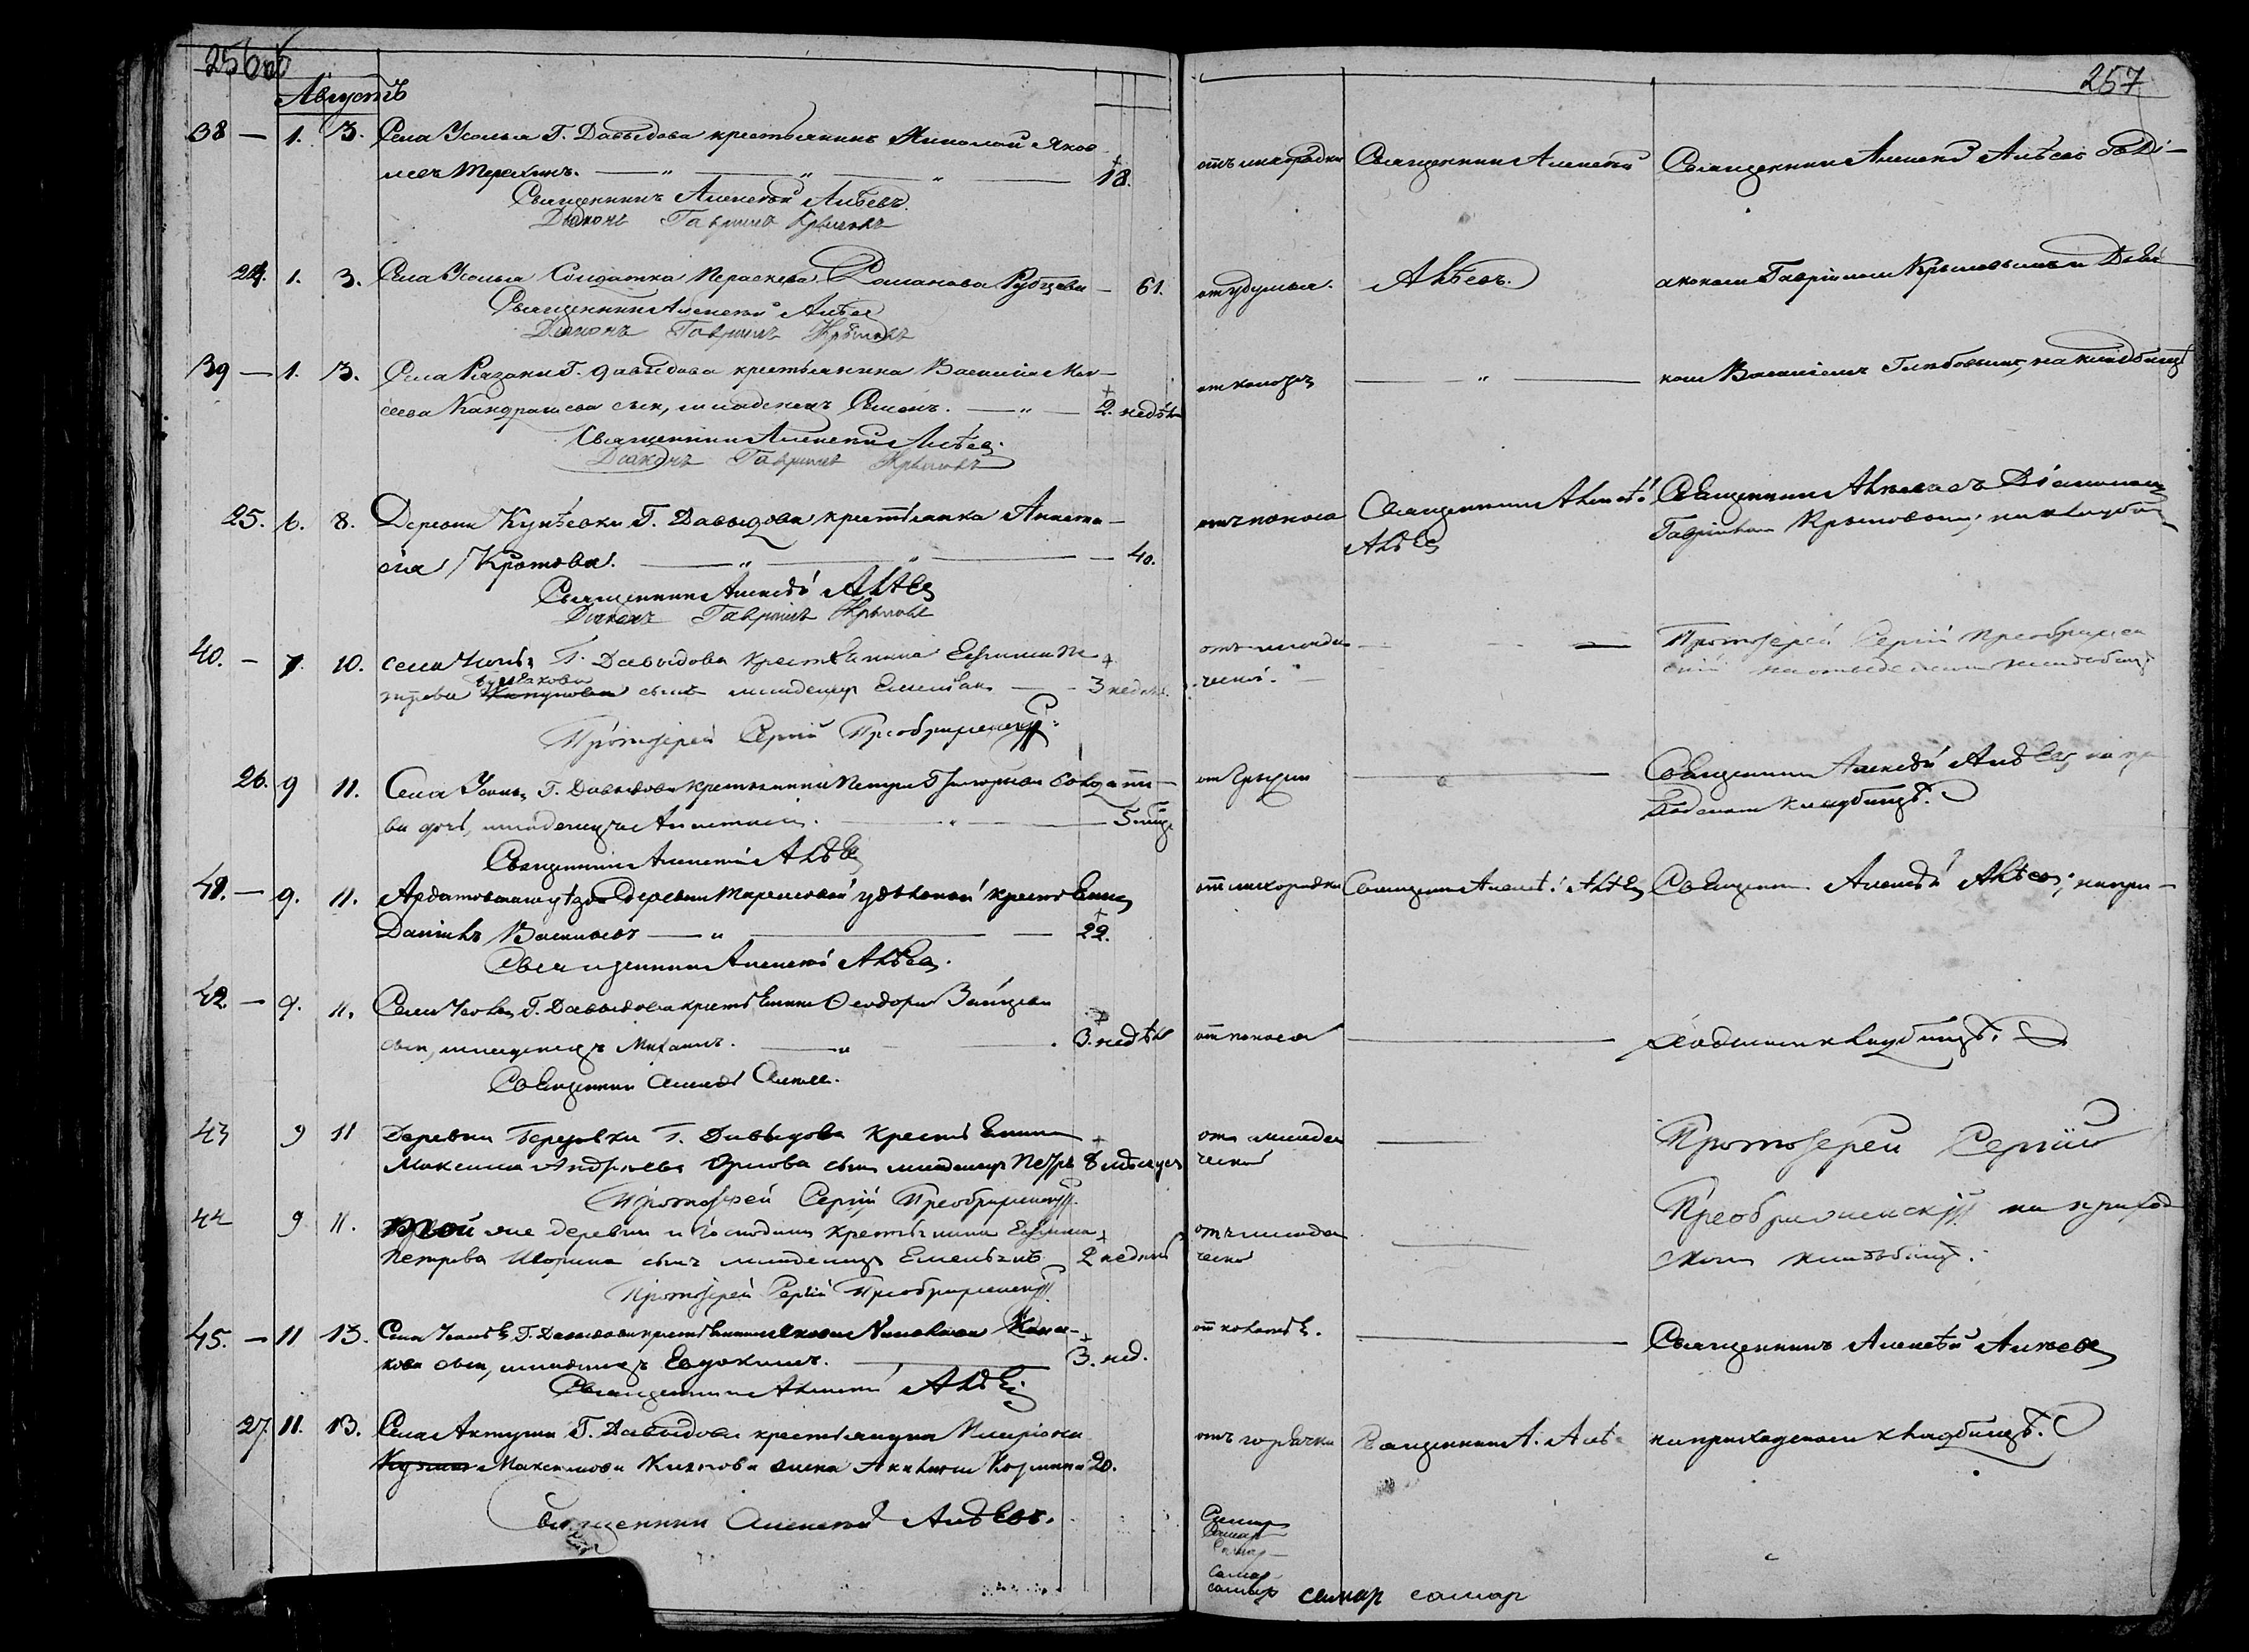 256 об
Августъ
38 — 1. 3. Села Усолья Г. Давыдова крестьянинъ Николай Яков
левъ Терехинъ. — 18.
Священникъ Алексѣй Алѣевъ.
Діаконъ Гавріилъ Крыловъ
24. 1. 3. Села Усолья Солдатка Параскева Романова Рубцова — 61.
Священникъ Алексѣй Алѣев
Діаконъ Гавріилъ Крыловъ
39 — 1. 3. Села Рязани Г. Давыдова крестьянина Василія Мои-
сеева Кандрашева сын, младенецъ Семенъ. — 2. недѣли
Священникъ Алексѣй Алѣев.
Діаконъ Гавріилъ Крыловъ
25. 6. 8. Деревни Кунѣевки Г. Давыдова крестьянка Анаста-
сія Кротова. — 40.
Священникъ Алексѣй Алѣев
Діаконъ Гавріилъ Крыловъ
40. — 7. 10. села Усолья Г. Давыдова крестьянина Ефима Пе
трова сынъ младенецъ Емельян — 3 недѣли.
Протоіерей Сергій Преображенскій
26. 9 11. Села Усолья Г. Давыдова крестьянина Петра Григорьева Солдатки-
на дочь, младенецъ Анастасія. — 5 мѣс
Священникъ Алексѣй Алѣев
41. — 9. 11. Ардатовскаго уѣзда деревни удѣльной крестьянин
Даніилъ Васильевъ — 22.
Священникъ Алексѣй Алѣев.
42 — 9. 11. Села Усолья Г. Давыдова крестьянина Ѳеодора Зайцева
сын, младенецъ Михаилъ. — 3. недѣли
Священник Алексѣй Алѣев.
43 9 11 Деревни Березовки Г. Давыдова крестьянина
Максима Андреева Орлова сынъ младенецъ Петръ 8 мѣсяцев
Протоіерей Сергій Преображенскій
44 9 11. Той же деревни и Господина крестьянина Ефима
Петрова сынъ младенецъ Емельянъ 2 недѣли
Протоіерей Сергій Преображенскій
45. — 11 13. Села Усолья Г. Давыдова крестьянина Якова Николаева
кова сын, младенецъ Евдокимъ. — 3. нед.
Священникъ Алексѣй Алѣев
27. 11. 13. Села Актуши Г. Давыдова крестьянина Иларіона
Максимова жена Акилина Козмина 20.
Священникъ Алексѣй Алѣевъ.
257
отъ лихорадки Священникъ Алексѣй Священникъ Алексѣй Алѣевъ съ Ді-
от удушья. Алѣевъ. акономъ Гавріиломъ Крыловымъ и Дьяч
от колотья — ком Василіемъ Глѣбовымъ, на кладбищѣ
отъ поноса Священникъ Алексѣй Священникъ Алѣевъ съ Діакономъ
Алѣев Гавріиломъ Крыловым, на кладби
отъ младен — Протоіерей Сергій Преображен
ческой. скій на отведенномъ кладбищѣ
от грыжи — Священникъ Алексѣй Алѣев, на при
ходскомъ кладбищѣ.
от лихорадки Священникъ Алексѣй Алѣев Священникъ Алексѣй Алѣевъ, на при-
от поноса — ходскомъ кладбищѣ.
отъ младен — Протоіерей Сергій
ческой
отъ младен — Преображенскій на приход
ческой скомъ кладбищѣ.
от колотья. — Священникъ Алексѣй Алѣев
отъ горячки Священникъ А. Алѣ на приходскомъ кладбищѣ.
Самар
Самар
Самар
Самар
самар самар самар